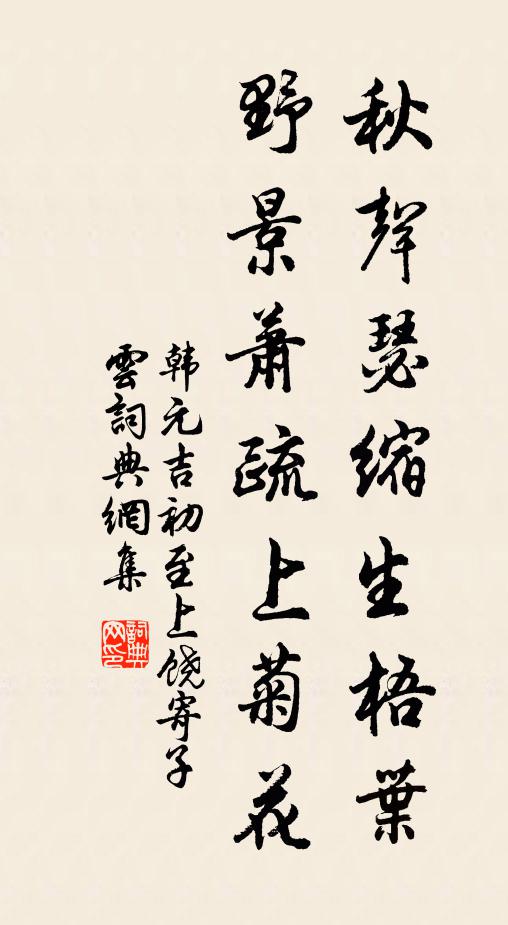 秋聲瑟縮生梧葉
野景蕭疏上菊花
韩元吉初至上饶寄子
雲詞典網集
詞典
网印